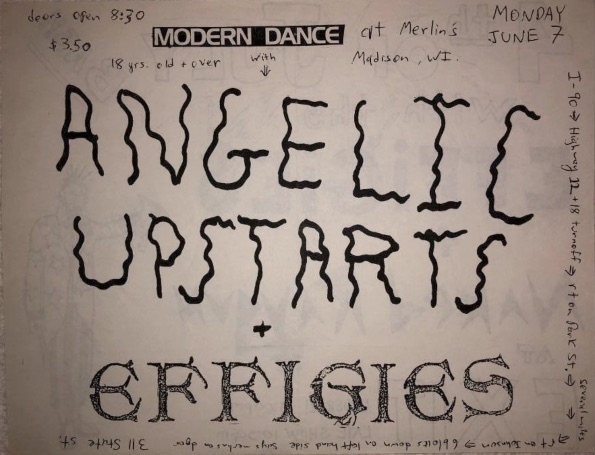 doors open 8:30
$3.50
18 yrs. old + over
MODERN DANCE
with
at Merlin's
Madison, WI.
MONDAY
JUNE 7
ANGELIC
UPSTARTS
+
EFFIGIES
I-90 → Highway 12+18 turnoff → rt on Park St. → several miles →
→ rt on Johnson → 6 blocks down on left hand side says merlins on door 311 State St.